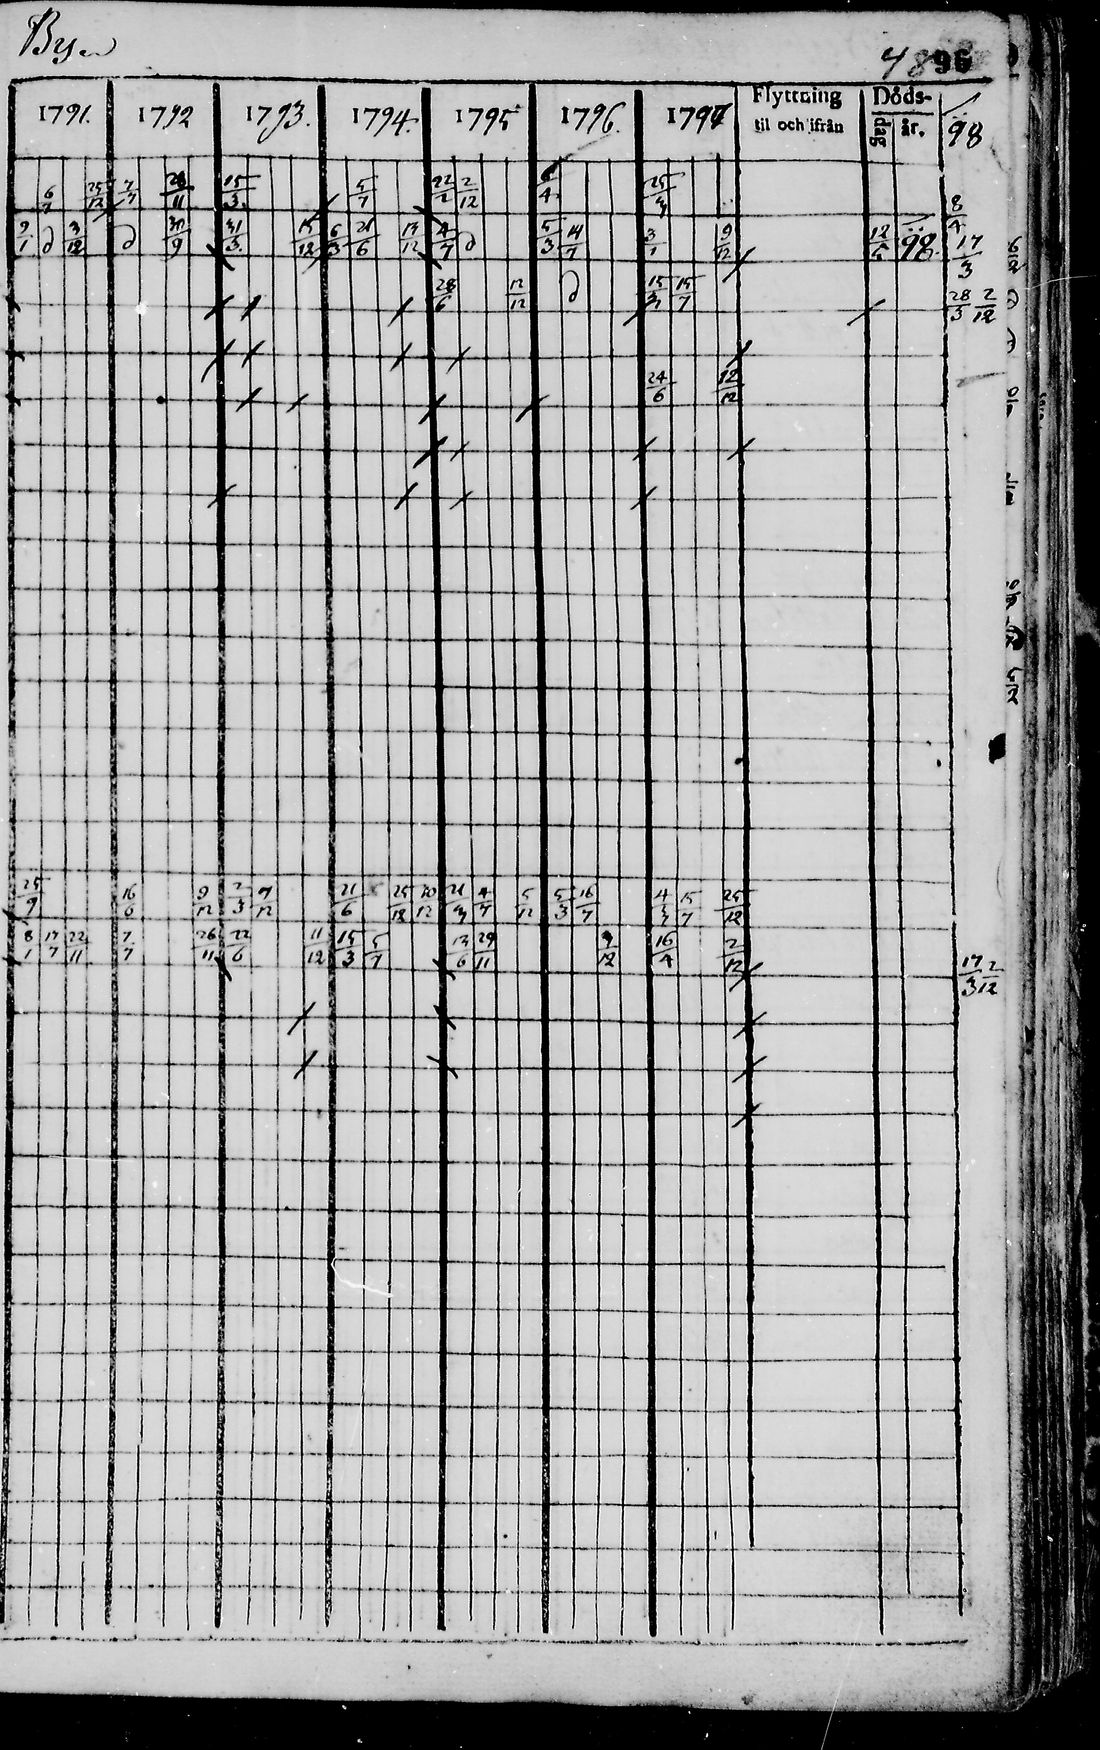 Byn
48 96
1791. 1792 1793. 1794. 1795 1796. 1797 Flyttning Döds- 98
til och ifrån dag år.
6/7 25/12 7/7 28/11 15/3. 5/7 22/2 2/12 6/4. 25/3 8/4
2/1 d 3/12 d 30/9 31/3. 15/12 6/3 21/6 13/12 4/7 d 5/3 14/7 3/1 9/12 12/5 98. 17/3
28/6 12/12 d 15/3 15/7 28/3 2/12
24/6 12/12
25/9 16/6 9/12 2/3 9/12 21/6 25/12 20/12 21/3 4/7 5/12 5/3 16/7 4/3 15/7 25/12
8/1 17/7 22/11 7/7 26/11 22/6 11/12 15/3 5/7 13/6 29/11 4/12 16/4 2/12 17/3 2/12